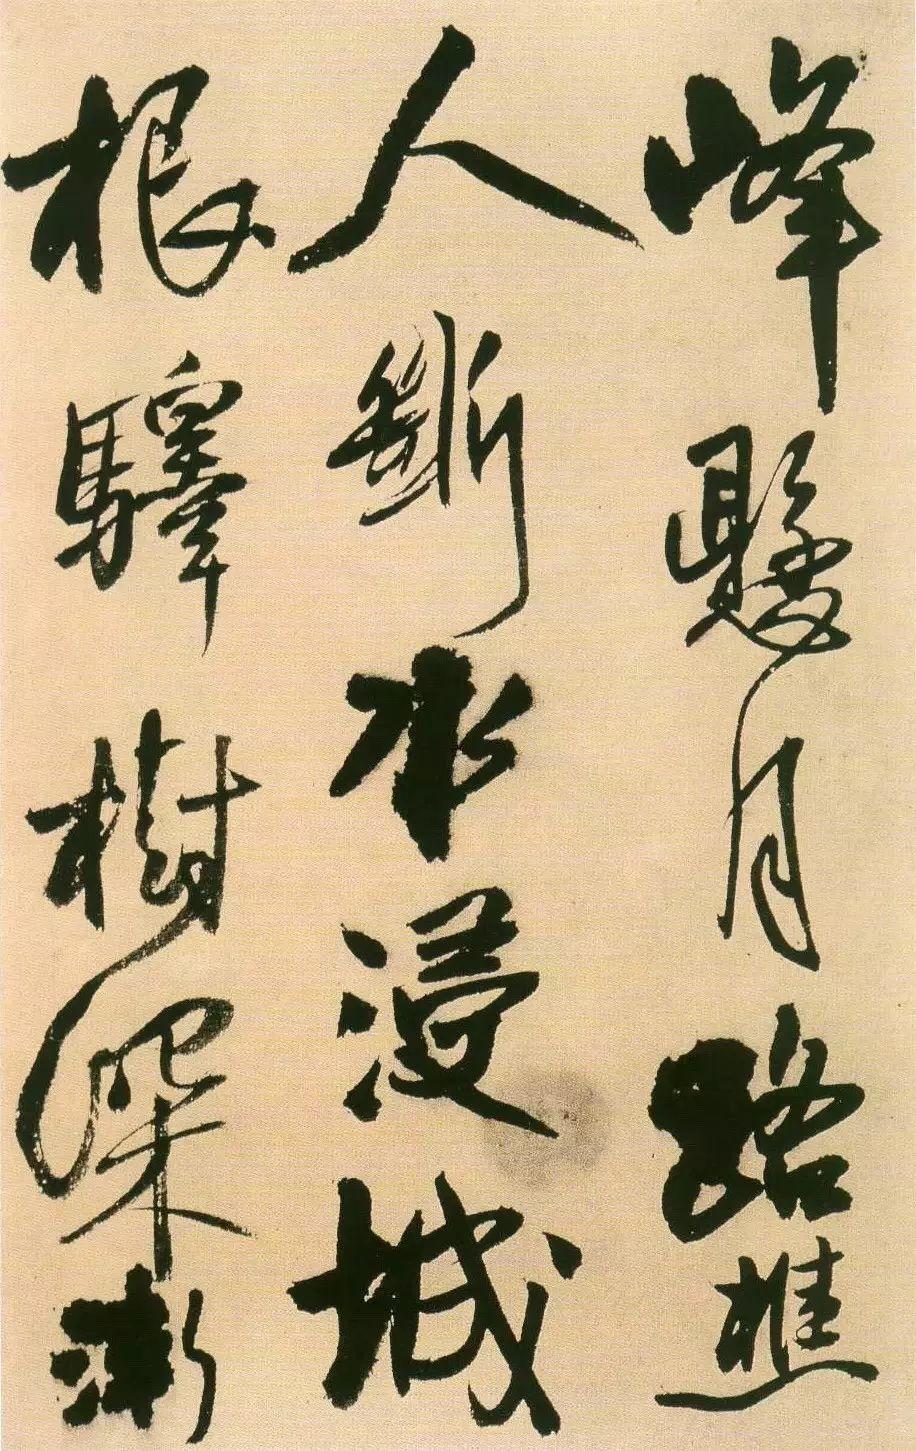 峰懸月路樵
人斷水浸城
根驛樹深漸